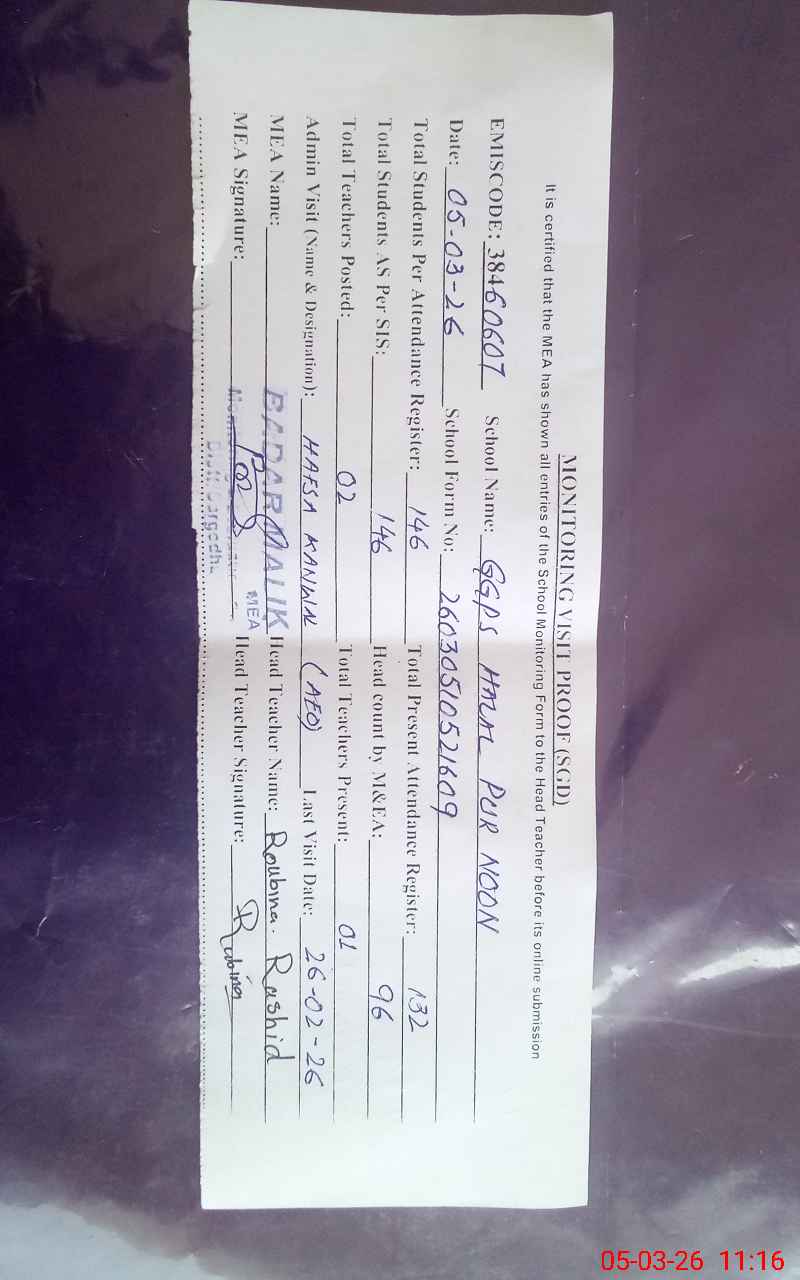 MONITORING VISIT PROOF (SGD)
It is certified that the MEA has shown all entries of the School Monitoring Form to the Head Teacher before its online submission
EMISCODE: 38460607 School Name: GGPS HALAL PUR NOON
Date: 05-03-26 School Form No: 26030510521609
Total Students Per Attendance Register: 146 Total Present Attendance Register: 132
Total Students AS Per SIS: 146 Head count by M&EA: 96
Total Teachers Posted: 02 Total Teachers Present: 01
Admin Visit (Name & Designation): HAFSA KANWAL (AEO) Last Visit Date: 26-02-26
MEA Name: BADAR MALIK Head Teacher Name: Roubina. Rashid
MEA
MEA Signature: Head Teacher Signature: Rubina
Distt: Sargodha
05-03-26 11:16